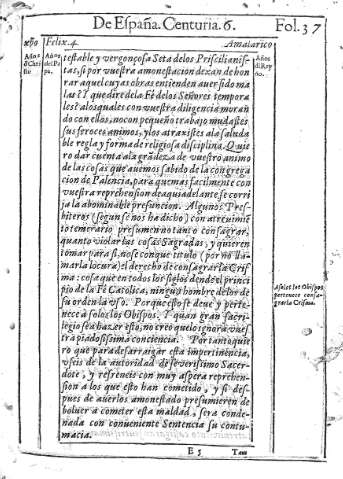 De España. Centuria. 6.
Fol. 37
xpõ
Felix. 4.
Amalarico
Años
d Chri
sto
Años
del Pa
pa.
Años
dl Rey
no.
testable y vergonçosa Seta delos Priscilianis-
tas, si por vuestra amonestacion dexan de hon
rar aquel cuyas obras entienden auer sido ma
las? que dire de la Fé delos Señores tempora
les? alos quales con vuestra diligencia moran
do con ellos, no con pequeño trabajo mudastes
sus feroces animos, y los atraxistes ala saluda
ble regla y forma de religiosa disciplina. Quie
ro dar cuenta ala grãdeza de vuestro animo
de las cosas que auemos sabido de la congrega
cion de Palencia, para que mas facilmente con
vuestra reprehension de aqui adelante se corri
ja la abominable presuncion. Algunos Pres-
biteros (segun se nos ha dicho) con atreuimiẽ
to temerario presumen no tanto consagrar,
quanto violar las cosas Sagradas, y quieren
tomar para si, no se con que titulo (por no lla
marla locura) el derecho de consagrar la Cris
ma: cosa que en todos los siglos desde el princi
pio de la Fè Catolica, ningũ hombre dexò de
su orden la vso. Porque esto se deue y perte-
nece à solos los Obispos. Y quan gran sacri-
legio sea hazer esto, no creo que lo ignora vues
tra piadosissima conciencia. Por tanto quie
ro que para desarraigar esta impertinencia,
vseis de la autoridad de seuerissimo Sacer-
dote, y refreneis con muy aspera reprehen-
sion a los que esto han cometido, y si des-
pues de auerlos amonestado presumieren de
boluer a cometer esta maldad, sera conde-
nada con conueniente Sentencia su contu-
macia.
A solos los Obispos
pertenece consa-
grar la Crisma.
E 5
Tam